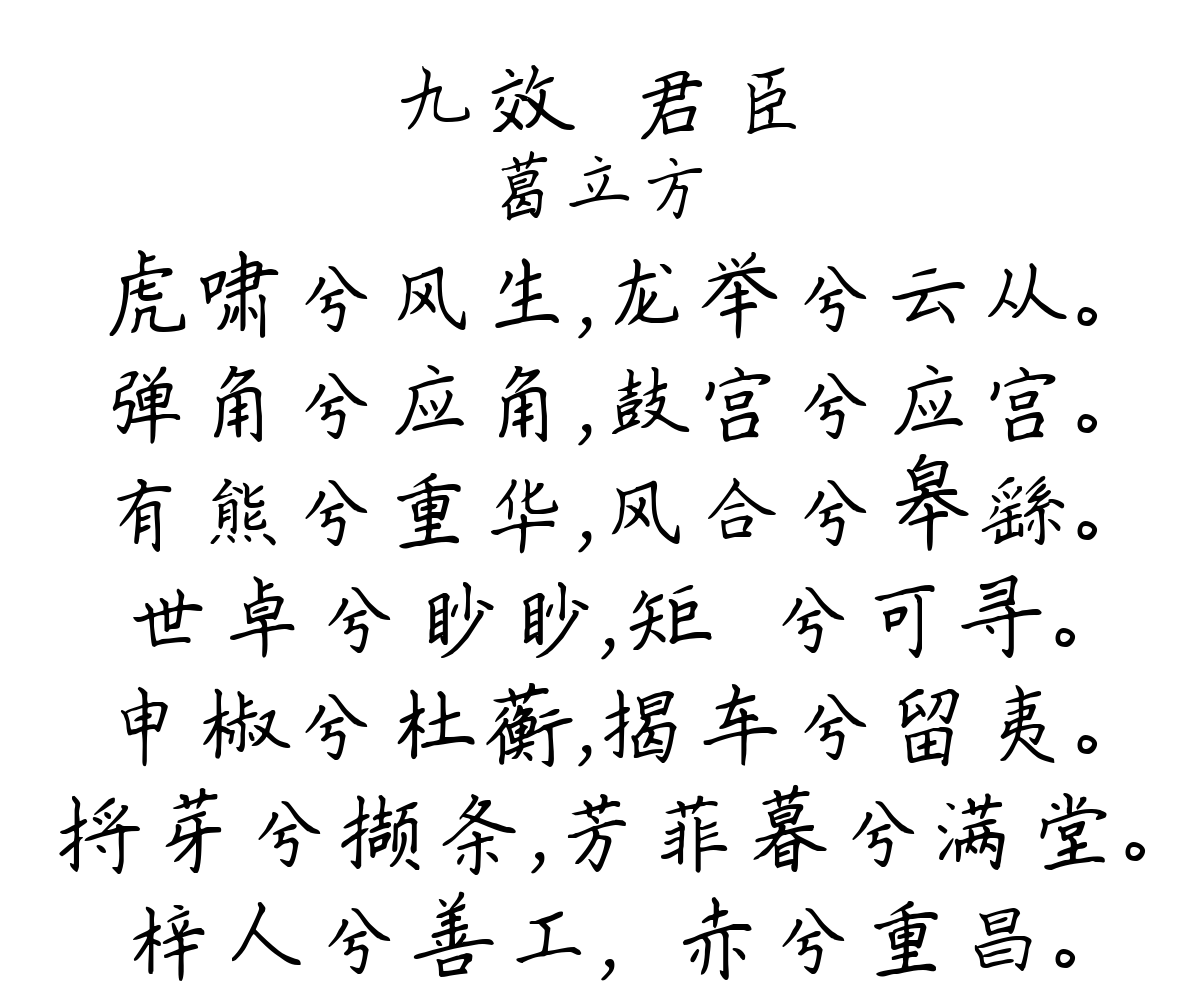 九效 君臣
葛立方
虎啸兮风生,龙举兮云从。
弹角兮应角,鼓宫兮应宫。
有熊兮重华,风合兮皋繇。
世卓兮眇眇,矩 兮可寻。
申椒兮杜蘅,揭车兮留夷。
捋芽兮撷条,芳菲暮兮满堂。
梓人兮善工, 赤兮重昌。